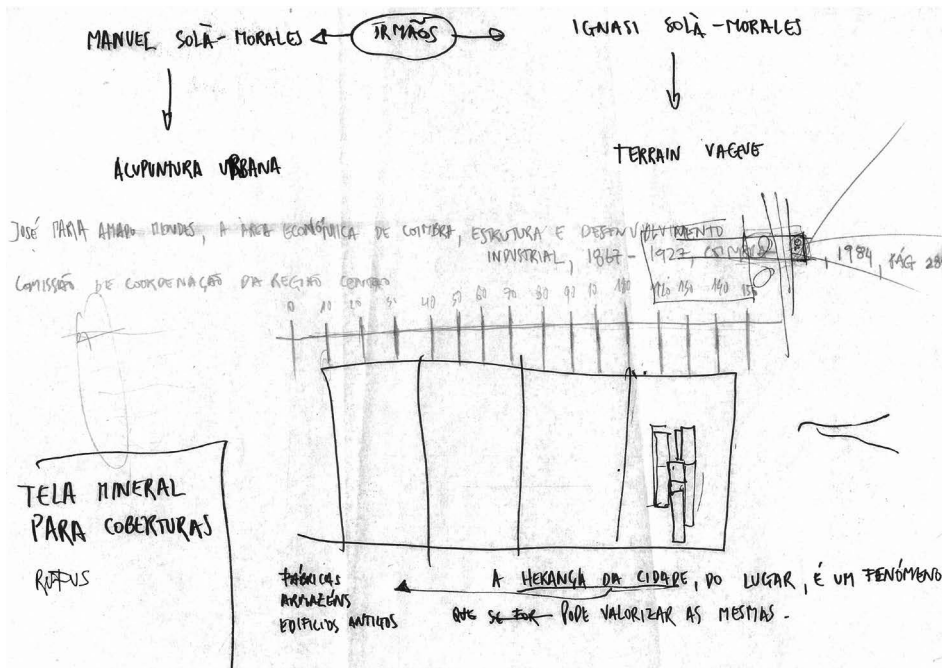 MANUEL SOLÀ-MORALES
IRMÃOS
IGNASI SOLÀ-MORALES
ACUPUNTURA URBANA
TERRAIN VAGUE
JOSÉ MARIA AMADO MENDES, A ÁREA ECONÓMICA DE COIMBRA, ESTRUTURA E DESENVOLVIMENTO
INDUSTRIAL, 1867-1927, COIMBRA, 1984, PÁG 28
COMISSÃO DE COORDENAÇÃO DA REGIÃO CENTRO
0 10 20 30 40 50 60 70 80 90 10 110 120 130 140 150
TELA MINERAL
PARA COBERTURAS
FÁBRICAS
ARMAZÉNS
EDIFÍCIOS ANTIGOS
A HERANÇA DA CIDADE, DO LUGAR, É UM FENÓMENO
QUE SE FOR PODE VALORIZAR AS MESMAS.